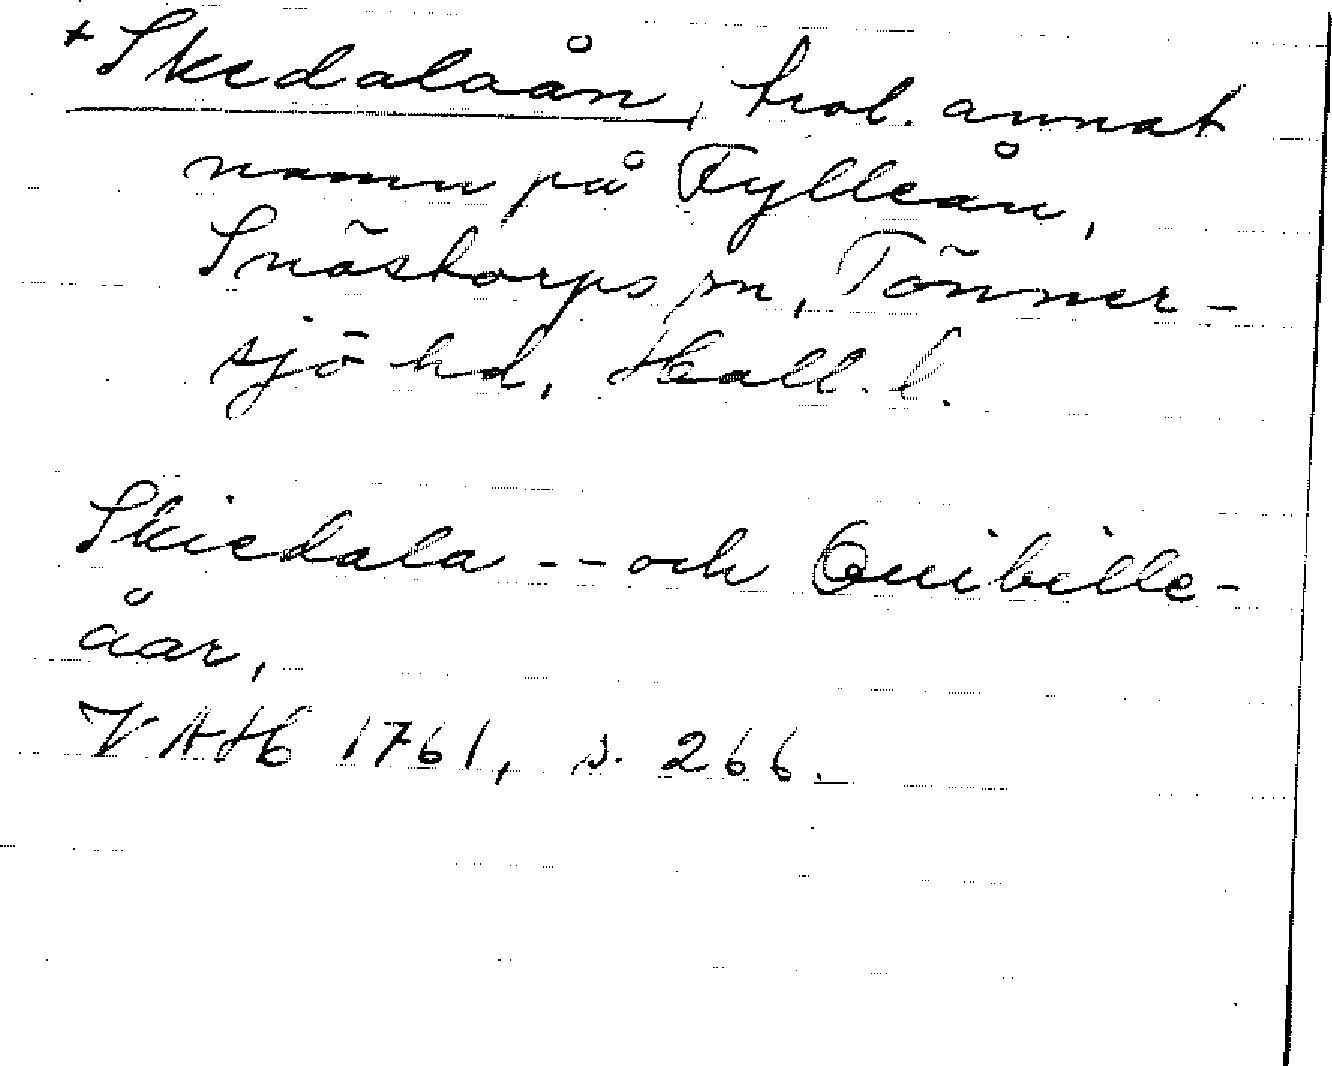 + Skedalaån, trol. annat
namn på Fylleån,
Snöstorps sn, Tönner-
sjö hd, Hall. l.
Skiedala -- och Quibille-
åar,
VAH 1761, s. 266.